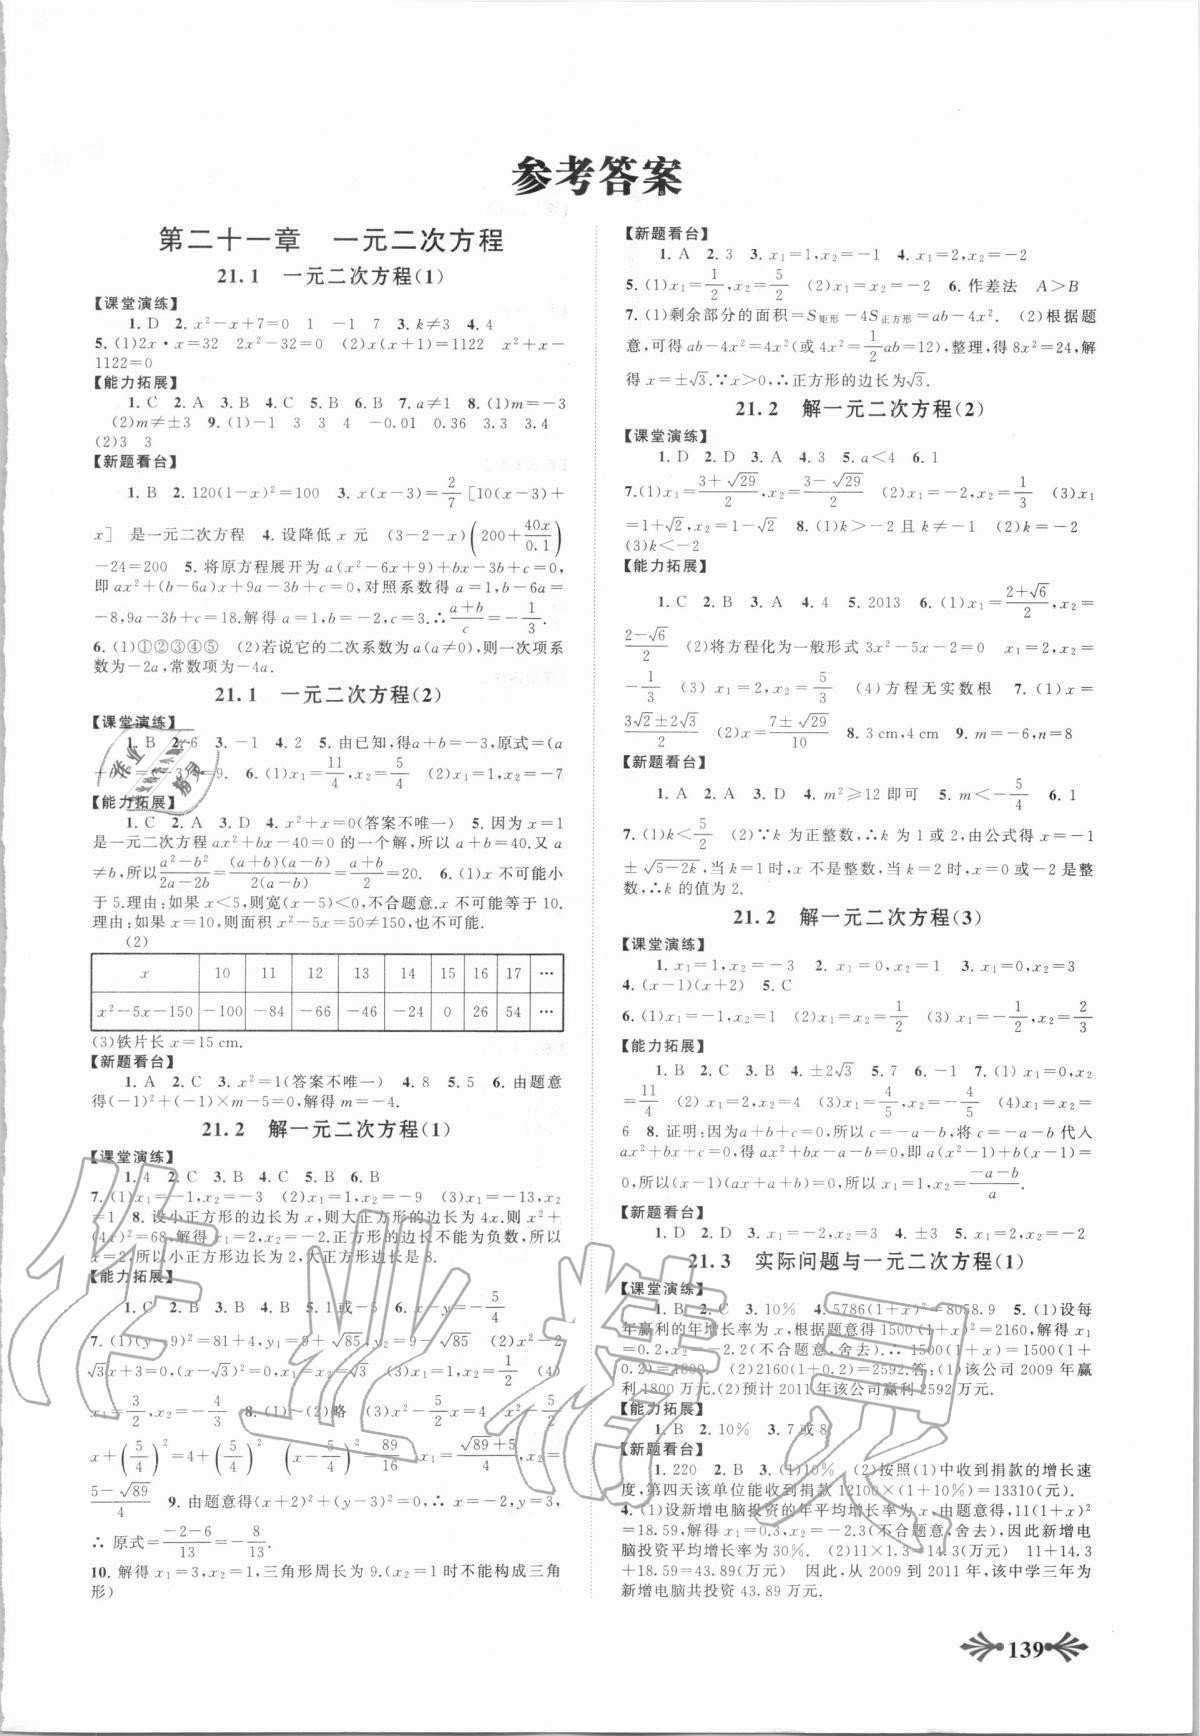 参考答案
第二十一章　一元二次方程
21.1　一元二次方程(1)
【课堂演练】
1. D 2. x²－x＋7＝0　1　－1　7 3. k≠3 4. 4
5. (1)2x·x＝32　2x²－32＝0　(2)x(x＋1)＝1122　x²＋x－
1122＝0
【能力拓展】
1. C 2. A 3. B 4. C 5. B 6. B 7. a≠1 8. (1)m＝－3
(2)m≠±3 9. (1)－1　3　3　4　－0.01　0.36　3.3　3.4
(2)3　3
【新题看台】
1. B 2. 120(1－x)²＝100 3. x(x－3)＝2/7［10(x－3)＋
x］　是一元二次方程 4. 设降低 x 元　(3－2－x)(200＋40x/0.1)
－24＝200 5. 将原方程展开为 a(x²－6x＋9)＋bx－3b＋c＝0,
即 ax²＋(b－6a)x＋9a－3b＋c＝0,对照系数得 a＝1,b－6a＝
－8,9a－3b＋c＝18.解得 a＝1,b＝－2,c＝3.∴(a＋b)/c＝－1/3.
6. (1)①②③④⑤　(2)若说它的二次系数为 a(a≠0),则一次项系
数为－2a,常数项为－4a.
21.1　一元二次方程(2)
【课堂演练】
1. B 2. 6 3. －1 4. 2 5. 由已知,得a＋b＝－3,原式＝(a
6. (1)x₁＝11/4,x₂＝5/4　(2)x₁＝1,x₂＝－7
【能力拓展】
1. C 2. A 3. D 4. x²＋x＝0(答案不唯一) 5. 因为 x＝1
是一元二次方程 ax²＋bx－40＝0 的一个解,所以 a＋b＝40.又 a
≠b,所以(a²－b²)/(2a－2b)＝(a＋b)(a－b)/2(a－b)＝(a＋b)/2＝20. 6. (1)x 不可能小
于 5.理由:如果 x＜5,则宽(x－5)＜0,不合题意.x 不可能等于 10.
理由:如果 x＝10,则面积 x²－5x＝50≠150,也不可能.
(2)
x　10　11　12　13　14　15　16　17　…
x²－5x－150　－100　－84　－66　－46　－24　0　26　54　…
(3)铁片长 x＝15 cm.
【新题看台】
1. A 2. C 3. x²＝1(答案不唯一) 4. 8 5. 5 6. 由题意
得(－1)²＋(－1)×m－5＝0,解得 m＝－4.
21.2　解一元二次方程(1)
【课堂演练】
1. 4 2. C 3. B 4. C 5. B 6. B
7. (1)x₁＝－1,x₂＝－3　(2)x₁＝1,x₂＝－9　(3)x₁＝－13,x₂
＝1 8. 设小正方形的边长为 x,则大正方形的边长为 4x.则 x²＋
(4x)²＝68,解得 x₁＝2,x₂＝－2.正方形的边长不能为负数,所以
x＝2,所以小正方形边长为 2,大正方形边长是 8.
【能力拓展】
1. C 2. B 3. B 4. B 5. 1或－5 6. x－y＝－5/4
7. (1)(y－9)²＝81＋4,y₁＝9＋√85,y₂＝9－√85　(2)x²－2
√3x＋3＝0,(x－√3)²＝0,x₁＝x₂＝√3　(3)x₁＝1,x₂＝1/2　(4)
x₁＝3/2,x₂＝－4/3 8. (1)～(2)略　(3)x²－5/2x＝4　x²－5/2
x＋(5/4)²＝4＋(5/4)²　(x－5/4)²＝89/16　x₁＝(√89＋5)/4,x₂＝
(5－√89)/4 9. 由题意得(x＋2)²＋(y－3)²＝0,∴ x＝－2,y＝3,
∴ 原式＝(－2－6)/13＝－8/13.
10. 解得 x₁＝3,x₂＝1,三角形周长为 9.(x₂＝1 时不能构成三角
形)
【新题看台】
1. A 2. 3 3. x₁＝1,x₂＝－1 4. x₁＝2,x₂＝－2
5. (1)x₁＝1/2,x₂＝5/2　(2)x₁＝x₂＝－2 6. 作差法　A＞B
7. (1)剩余部分的面积＝S矩形－4S正方形＝ab－4x².　(2)根据题
意,可得 ab－4x²＝4x²(或 4x²＝1/2ab＝12),整理,得 8x²＝24,解
得 x＝±√3.∵x＞0,∴正方形的边长为√3.
21.2　解一元二次方程(2)
【课堂演练】
1. D 2. D 3. A 4. 3 5. a＜4 6. 1
7.(1)x₁＝(3＋√29)/2,x₂＝(3－√29)/2　(2)x₁＝－2,x₂＝1/3　(3)x₁
＝1＋√2,x₂＝1－√2 8. (1)k＞－2 且 k≠－1　(2)k＝－2
(3)k＜－2
【能力拓展】
1. C 2. B 3. A 4. 4 5. 2013 6. (1)x₁＝(2＋√6)/2,x₂＝
(2－√6)/2　(2)将方程化为一般形式 3x²－5x－2＝0　x₁＝2,x₂＝
－1/3　(3) x₁＝x₂＝5/3　(4)方程无实数根 7. (1)x＝
(3√2±2√3)/2　(2)x＝(7±√29)/10 8. 3 cm,4 cm 9. m＝－6,n＝8
【新题看台】
1. A 2. A 3. D 4. m²≥12 即可 5. m＜－5/4 6. 1
7. (1)k＜5/2　(2)∵k 为正整数,∴k 为 1 或 2,由公式得 x＝－1
±√(5－2k),当 k＝1 时,x 不是整数,当 k＝2 时,x＝0 或－2 是整
数,∴k 的值为 2.
21.2　解一元二次方程(3)
【课堂演练】
1. x₁＝1,x₂＝－3 2. x₁＝0,x₂＝1 3. x₁＝0,x₂＝3
4. (x－1)(x＋2) 5. C
6. (1)x₁＝－1,x₂＝1　(2)x₁＝0,x₂＝1/2　(3) x₁＝－1/2,x₂＝2/3
【能力拓展】
1. B 2. C 3. B 4. ±2√3 5. 7 6. －1 7. (1) x₁＝0,x₂＝
11/4　(2) x₁＝2,x₂＝4　(3)x₁＝4/5,x₂＝－4/5　(4)x₁＝x₂＝
6 8. 证明:因为a＋b＋c＝0,所以 c＝－a－b,将 c＝－a－b 代入
ax²＋bx＋c＝0,得 ax²＋bx－a－b＝0,即 a(x²－1)＋b(x－1)＝
0,所以(x－1)(ax＋a＋b)＝0,所以 x₁＝1,x₂＝(－a－b)/a.
【新题看台】
1. D 2. D 3. x₁＝0,x₂＝2 4. ±3 5. x₁＝2,x₂＝－2
21.3　实际问题与一元二次方程(1)
【课堂演练】
1. B 2. C 3. 10% 4. 5786(1＋x)²＝8058.9 5. (1)设每
年赢利的年增长率为 x,根据题意得 1500(1＋x)²＝2160,解得 x₁
＝0.2,x₂＝－2.2(不合题意,舍去).∴ 1500(1＋x)＝1500(1＋
0.2)＝1800.　(2)2160(1＋0.2)＝2592.答:(1)该公司 2009 年赢
利 1800 万元.(2)预计 2011 年该公司赢利 2592 万元.
【能力拓展】
1. B 2. 10% 3. 7 或 8
【新题看台】
1. 220 2. B 3. (1)10%　(2)按照(1)中收到捐款的增长速
度,第四天该单位能收到捐款 12100×(1＋10%)＝13310(元).
4. (1)设新增电脑投资的年平均增长率为 x,由题意得,11(1＋x)²
＝18.59,解得 x₁＝0.3,x₂＝－2.3(不合题意,舍去),因此新增电
脑投资平均增长率为 30%.　(2)11×1.3＝14.3(万元)　11＋14.3
＋18.59＝43.89(万元)　因此,从 2009 到 2011 年,该中学三年为
新增电脑共投资 43.89 万元.
139
作业精灵